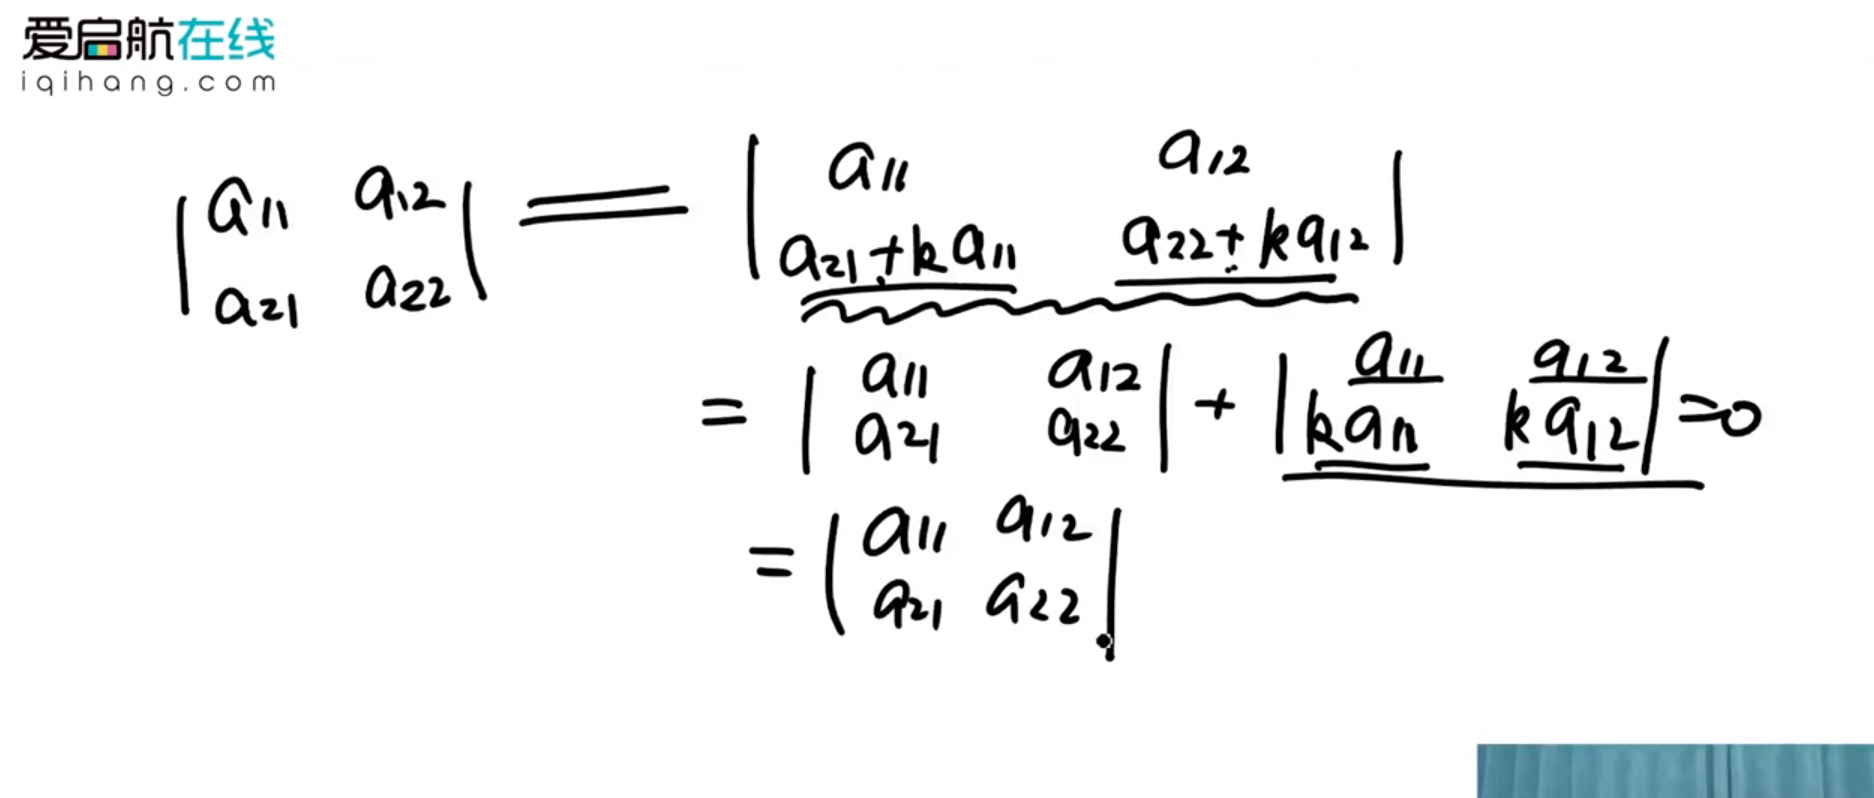 爱启航在线
iqihang.com
| a11 a12 | = | a11 a12 |
| a21 a22 | | a21+ka11 a22+ka12 |
= | a11 a12 | + | a11 a12 | =0
| a21 a22 | | ka11 ka12 |
= | a11 a12 |
| a21 a22 |